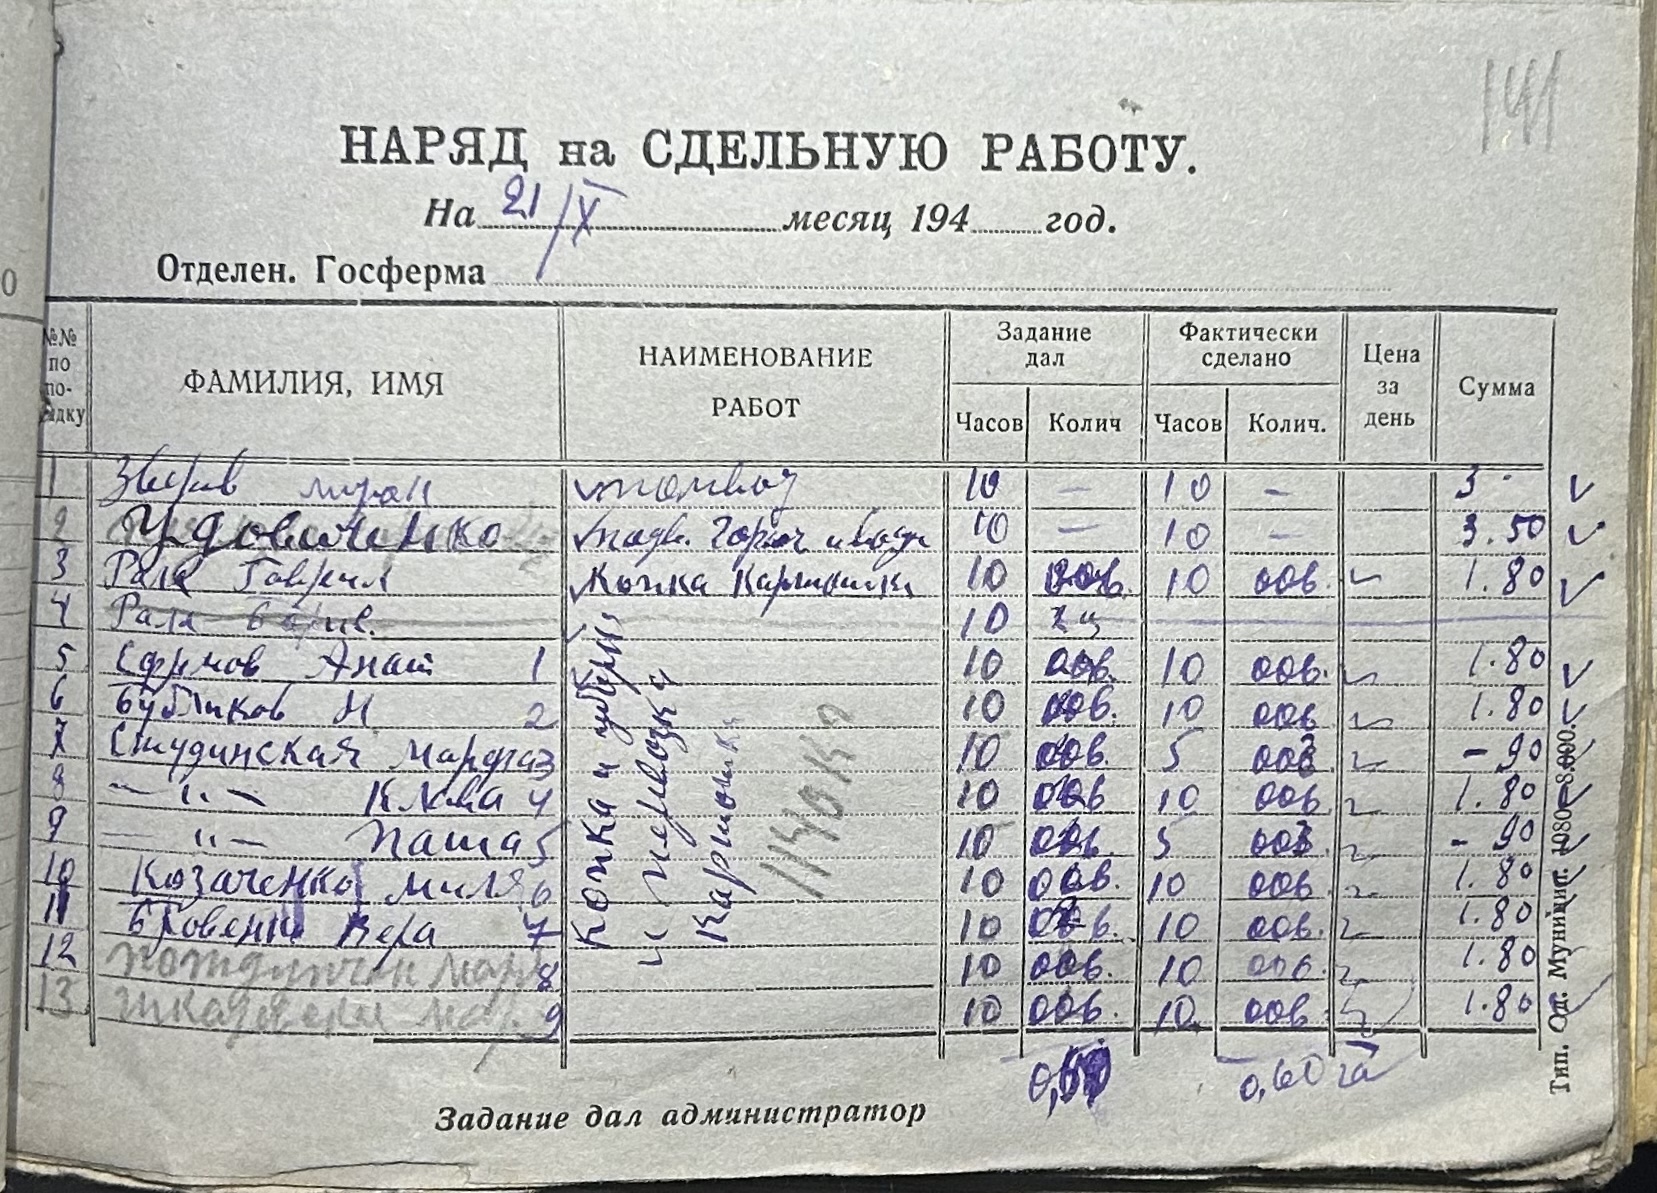 141
НАРЯД на СДЕЛЬНУЮ РАБОТУ.
На 21/X месяц 194 год.
Отделен. Госферма
№№ по по- рядку ФАМИЛИЯ, ИМЯ НАИМЕНОВАНИЕ РАБОТ Задание дал Фактически сделано Цена за день Сумма
Часов Колич Часов Колич.
1 10 — 10 — 3 -
2 Удовиченко 10 — 10 — 3.50
3 Рала Гаврил Копка Картошки 10 10 006. 1.80
4 Рала 10
5 Ефимов Анат 1 10 006. 10 006. 1.80
6 Бубликов Н 2 10 006. 10 006 1.80
7 Студинская Марфа 3 10 006. 5 003 - 90
8 — " — Клава 4 10 006 10 006. 1.80
9 — " — Паша 5 10 006. 5 003 - 90
10 Козаченко Миля 6 10 006. 10 006. 1.80
11 Бровенко Вера 7 10 006. 10 006. 1.80
12 8 10 006. 10 006. 1.80
13 9 10 006. 10 006 1.80
Копка и уборка
и перевозка
Картошки
1140 кг
0,60 га
Задание дал администратор
Тип. Од. Муницип. 1080—8.000.